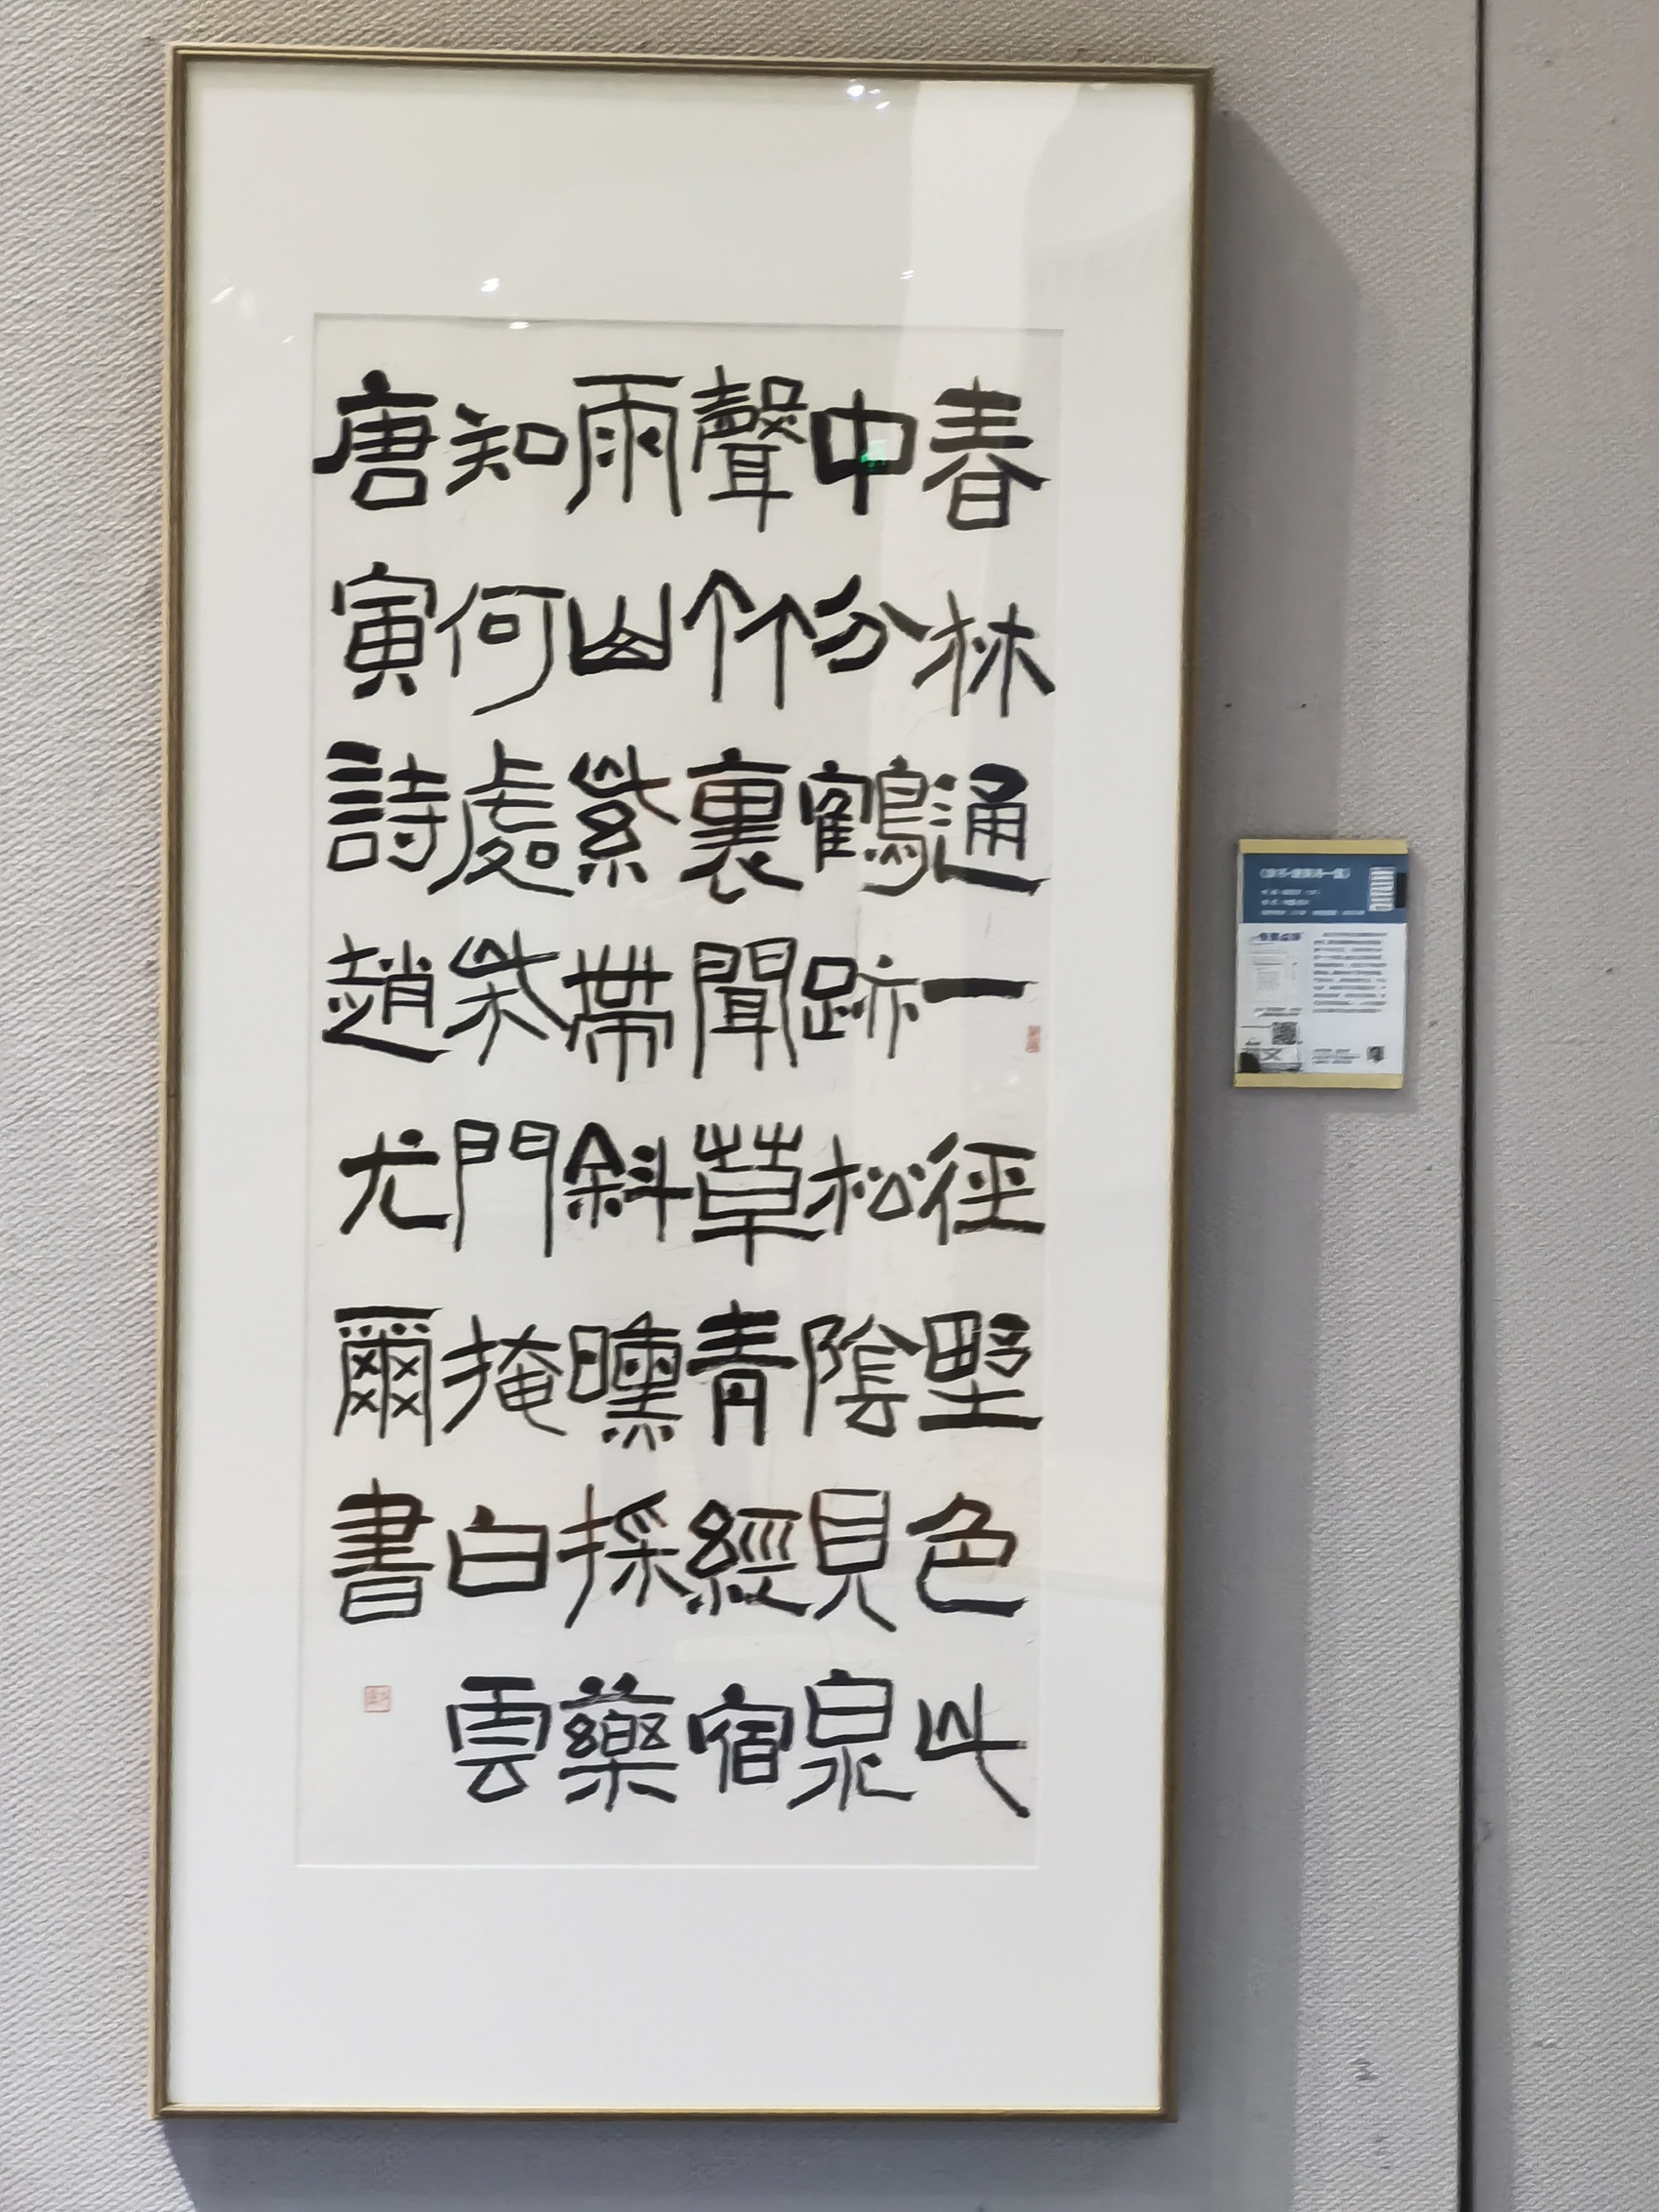 春林通一徑野色此
中分鶴跡松陰見泉
聲竹裏聞草青經宿
雨山紫帶斜曛採藥
知何處柴門掩白雲
唐寅詩趙尤爾書